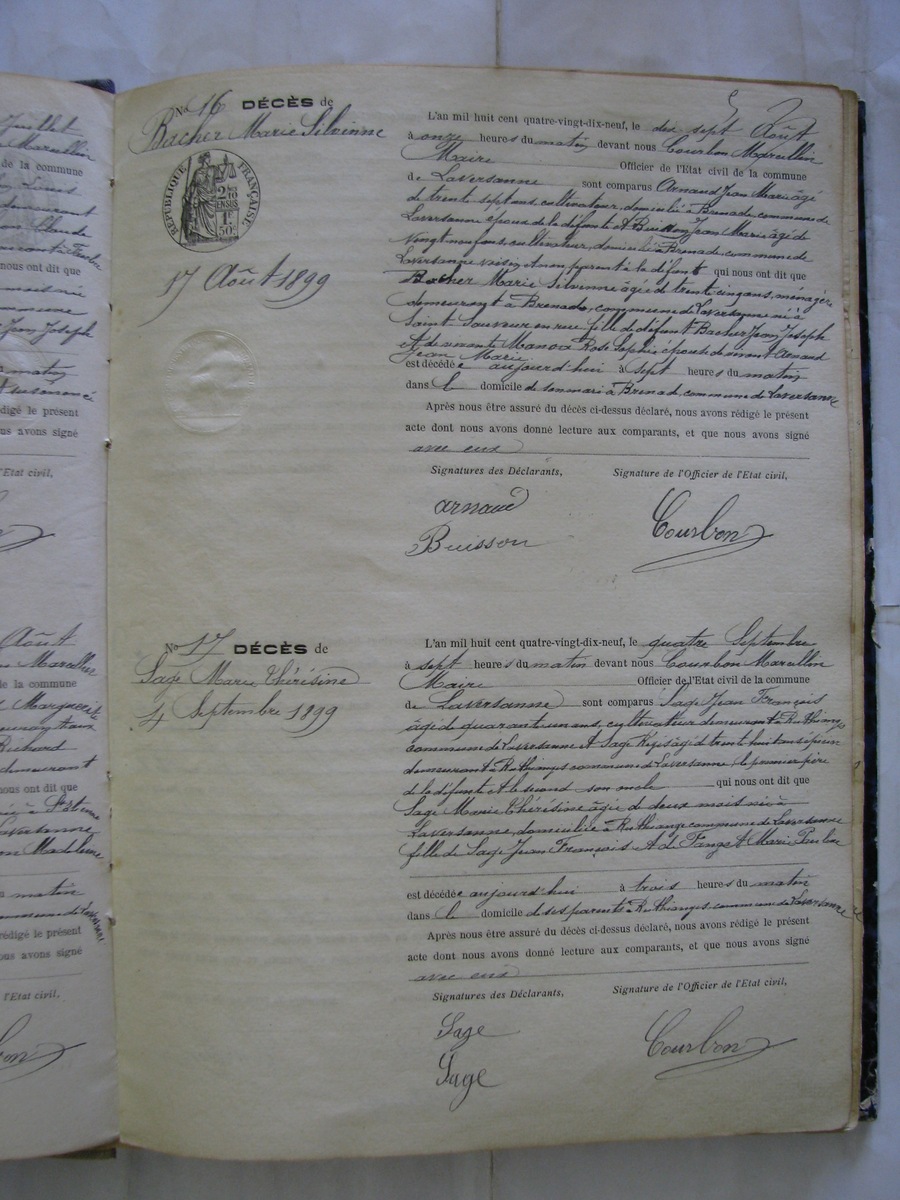 Juillet
Marcellin
de la commune
Louis
demeurant
Claude
nous ont dit que
mois né
commune
Jean Joseph
matin
rédigé le présent
us avons signé
l'Etat civil,
Août
Marcellin
de la commune
Richard
demeurant
nous ont dit que
Laversanne
Madeleine
matin
rédigé le présent
us avons signé
l'Etat civil,
No 16 DÉCÈS de
Bacher Marie Silvinne
RÉPUBLIQUE FRANÇAISE
2/10 EN SUS
1F 50c
17 Août 1899
L'an mil huit cent quatre-vingt-dix-neuf, le dix sept Août
à onze heures du matin devant nous Courbon Marcellin
Maire Officier de l'Etat civil de la commune
de Laversanne sont comparus Arnaud Jean Marie âgé
de trente sept ans, cultivateur, domicilié à Brenade, commune de
Laversanne époux de la défunte Et Buisson Jean Marie âgé de
Vingt neuf ans, cultivateur, domicilié à Brenade, commune de
Laversanne voisin et non parent à la défunte qui nous ont dit que
Bacher Marie Silvenne âgée de trente cinq ans, ménagère
demeurant à Brenade, commune de Laversanne née à
Saint Sauveur en rue fille de défunt Bacher Jean Joseph
et de vivante Manoa Rose Sophie épouse de vivant Arnaud
Jean Marie
est décédée aujourd'hui à sept heures du matin
dans le domicile de son mari à Brenad, commune de Laversanne
Après nous être assuré du décès ci-dessus déclaré, nous avons rédigé le présent
acte dont nous avons donné lecture aux comparants, et que nous avons signé
avec eux
Signatures des Déclarants, Signature de l'Officier de l'Etat civil,
Arnaud
Buisson Courbon
No 17 DÉCÈS de
Sage Marie Thérésine
4 Septembre 1899
L'an mil huit cent quatre-vingt-dix-neuf, le quatre Septembre
à sept heures du matin devant nous Courbon Marcellin
Maire Officier de l'Etat civil de la commune
de Laversanne sont comparus Sage Jean François
âgé de quarante un ans, cultivateur demeurant à Ruthiange
commune de Laversanne Et Sage Régis âgé de trente huit ans épicier
demeurant à Ruthianges commune de Laversanne, le premier père
de la défunte et le second son oncle qui nous ont dit que
Sage Marie Thérésine âgée de deux mois née à
Laversanne, domiciliée à Ruthiange commune de Laversanne
fille de Sage Jean François Et de Fanget Marie Pauline
est décédée aujourd'hui à trois heures du matin
dans le domicile de ses parents à Ruthianges, commune de Laversanne
Après nous être assuré du décès ci-dessus déclaré, nous avons rédigé le présent
acte dont nous avons donné lecture aux comparants, et que nous avons signé
avec eux
Signatures des Déclarants, Signature de l'Officier de l'Etat civil,
Sage
Sage Courbon